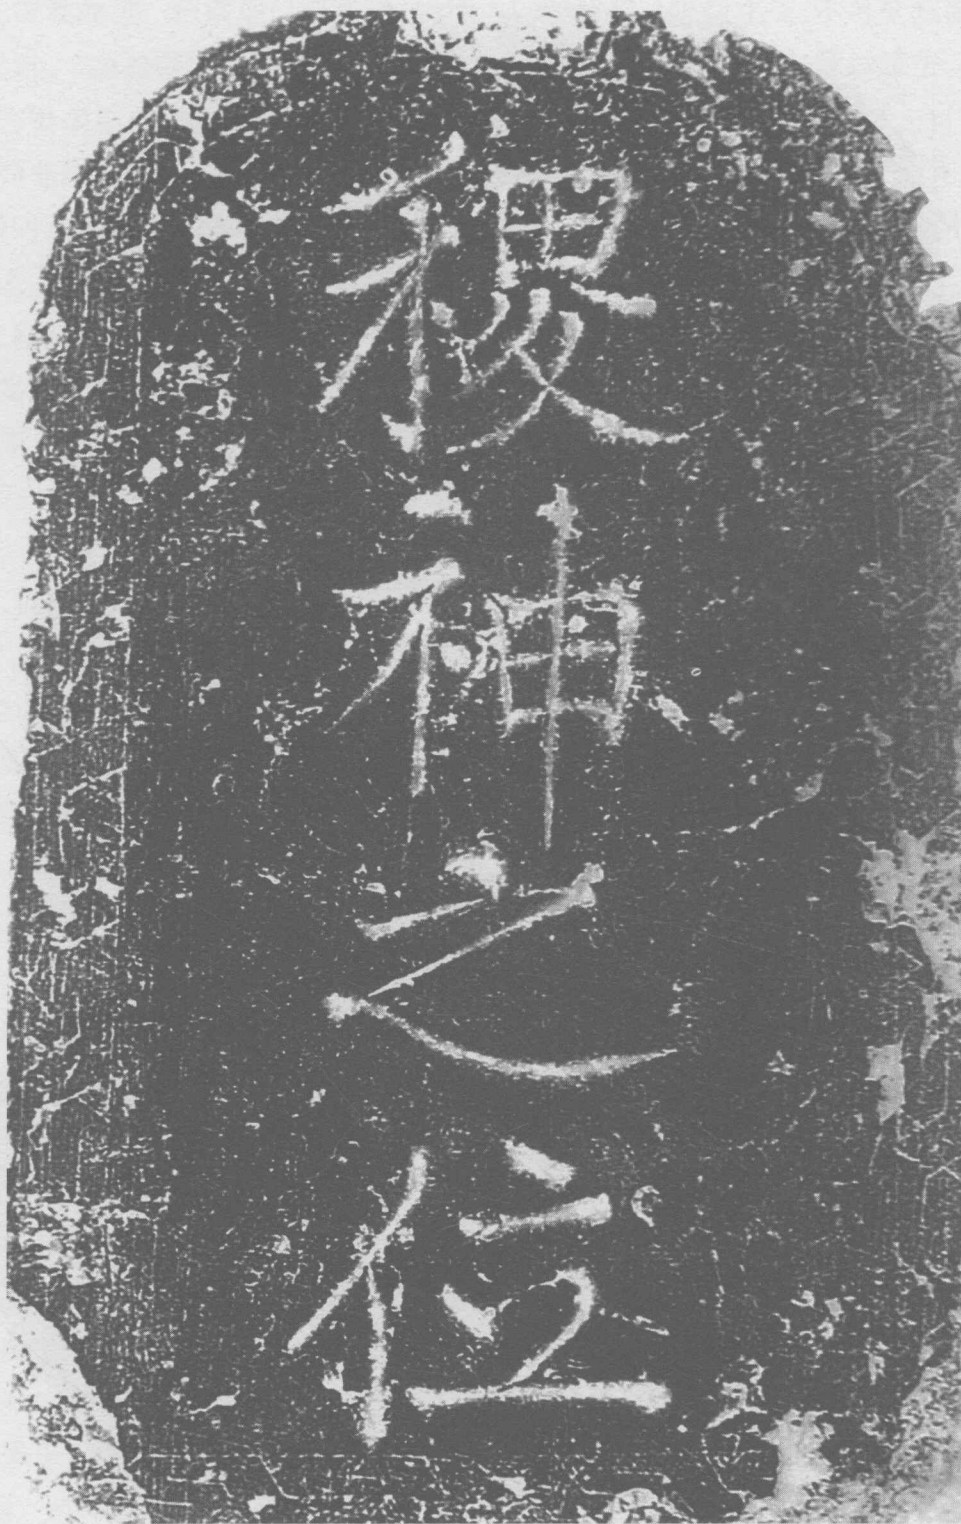 稷神之位